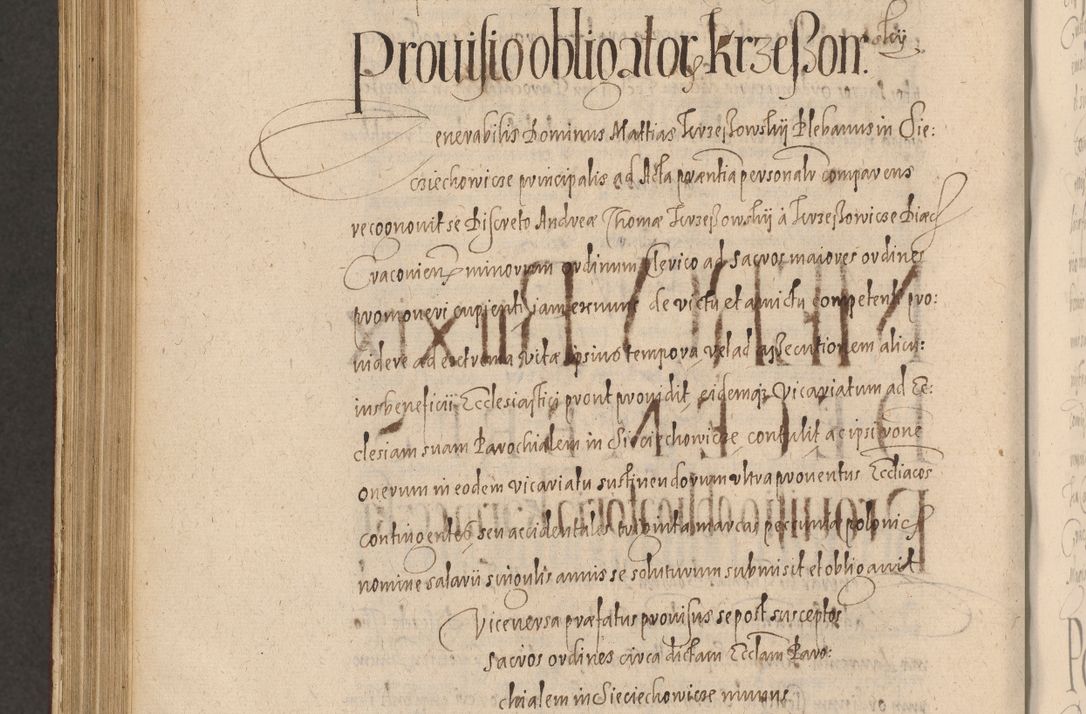 Prouisio obligator krzeßonowskij
enerabilis Dominus Mattias Krzeßowskij Plebanus in Sie:
cziechowicze principalis ad Acta præntia personalr comparens
recognouit se Discreto Andreæ Thomæ Krzeßowskij à Krzeßowicze Diæc
Cracouien minorum ordinum Clerico ad sacros maiores ordines
promoueri cupienti iam ex nunc de victu et amictu competenti pro:
uidere ad extrema vitæ ipsius tempora velad assecutionem alicu:
ius beneficii Ecclesiastici prout prouidit eidemq Vicariatum ad Ec:
clesiam suam Parochialem in Sieciechowicze contulit ac ipsi rone
onerum in eodem vicariatu sustinendorum vltra prouentus Ecclliacos
contingentes seu accidentales marcas peccuniæ polonic
nomine salarii singulis annis se soluturum submisit et obligauit
Viceuersa præfatus prouisus se post susceptos
sacros ordines circa dictam Ecclam Paro:
chialem in Sieciechowicze munus